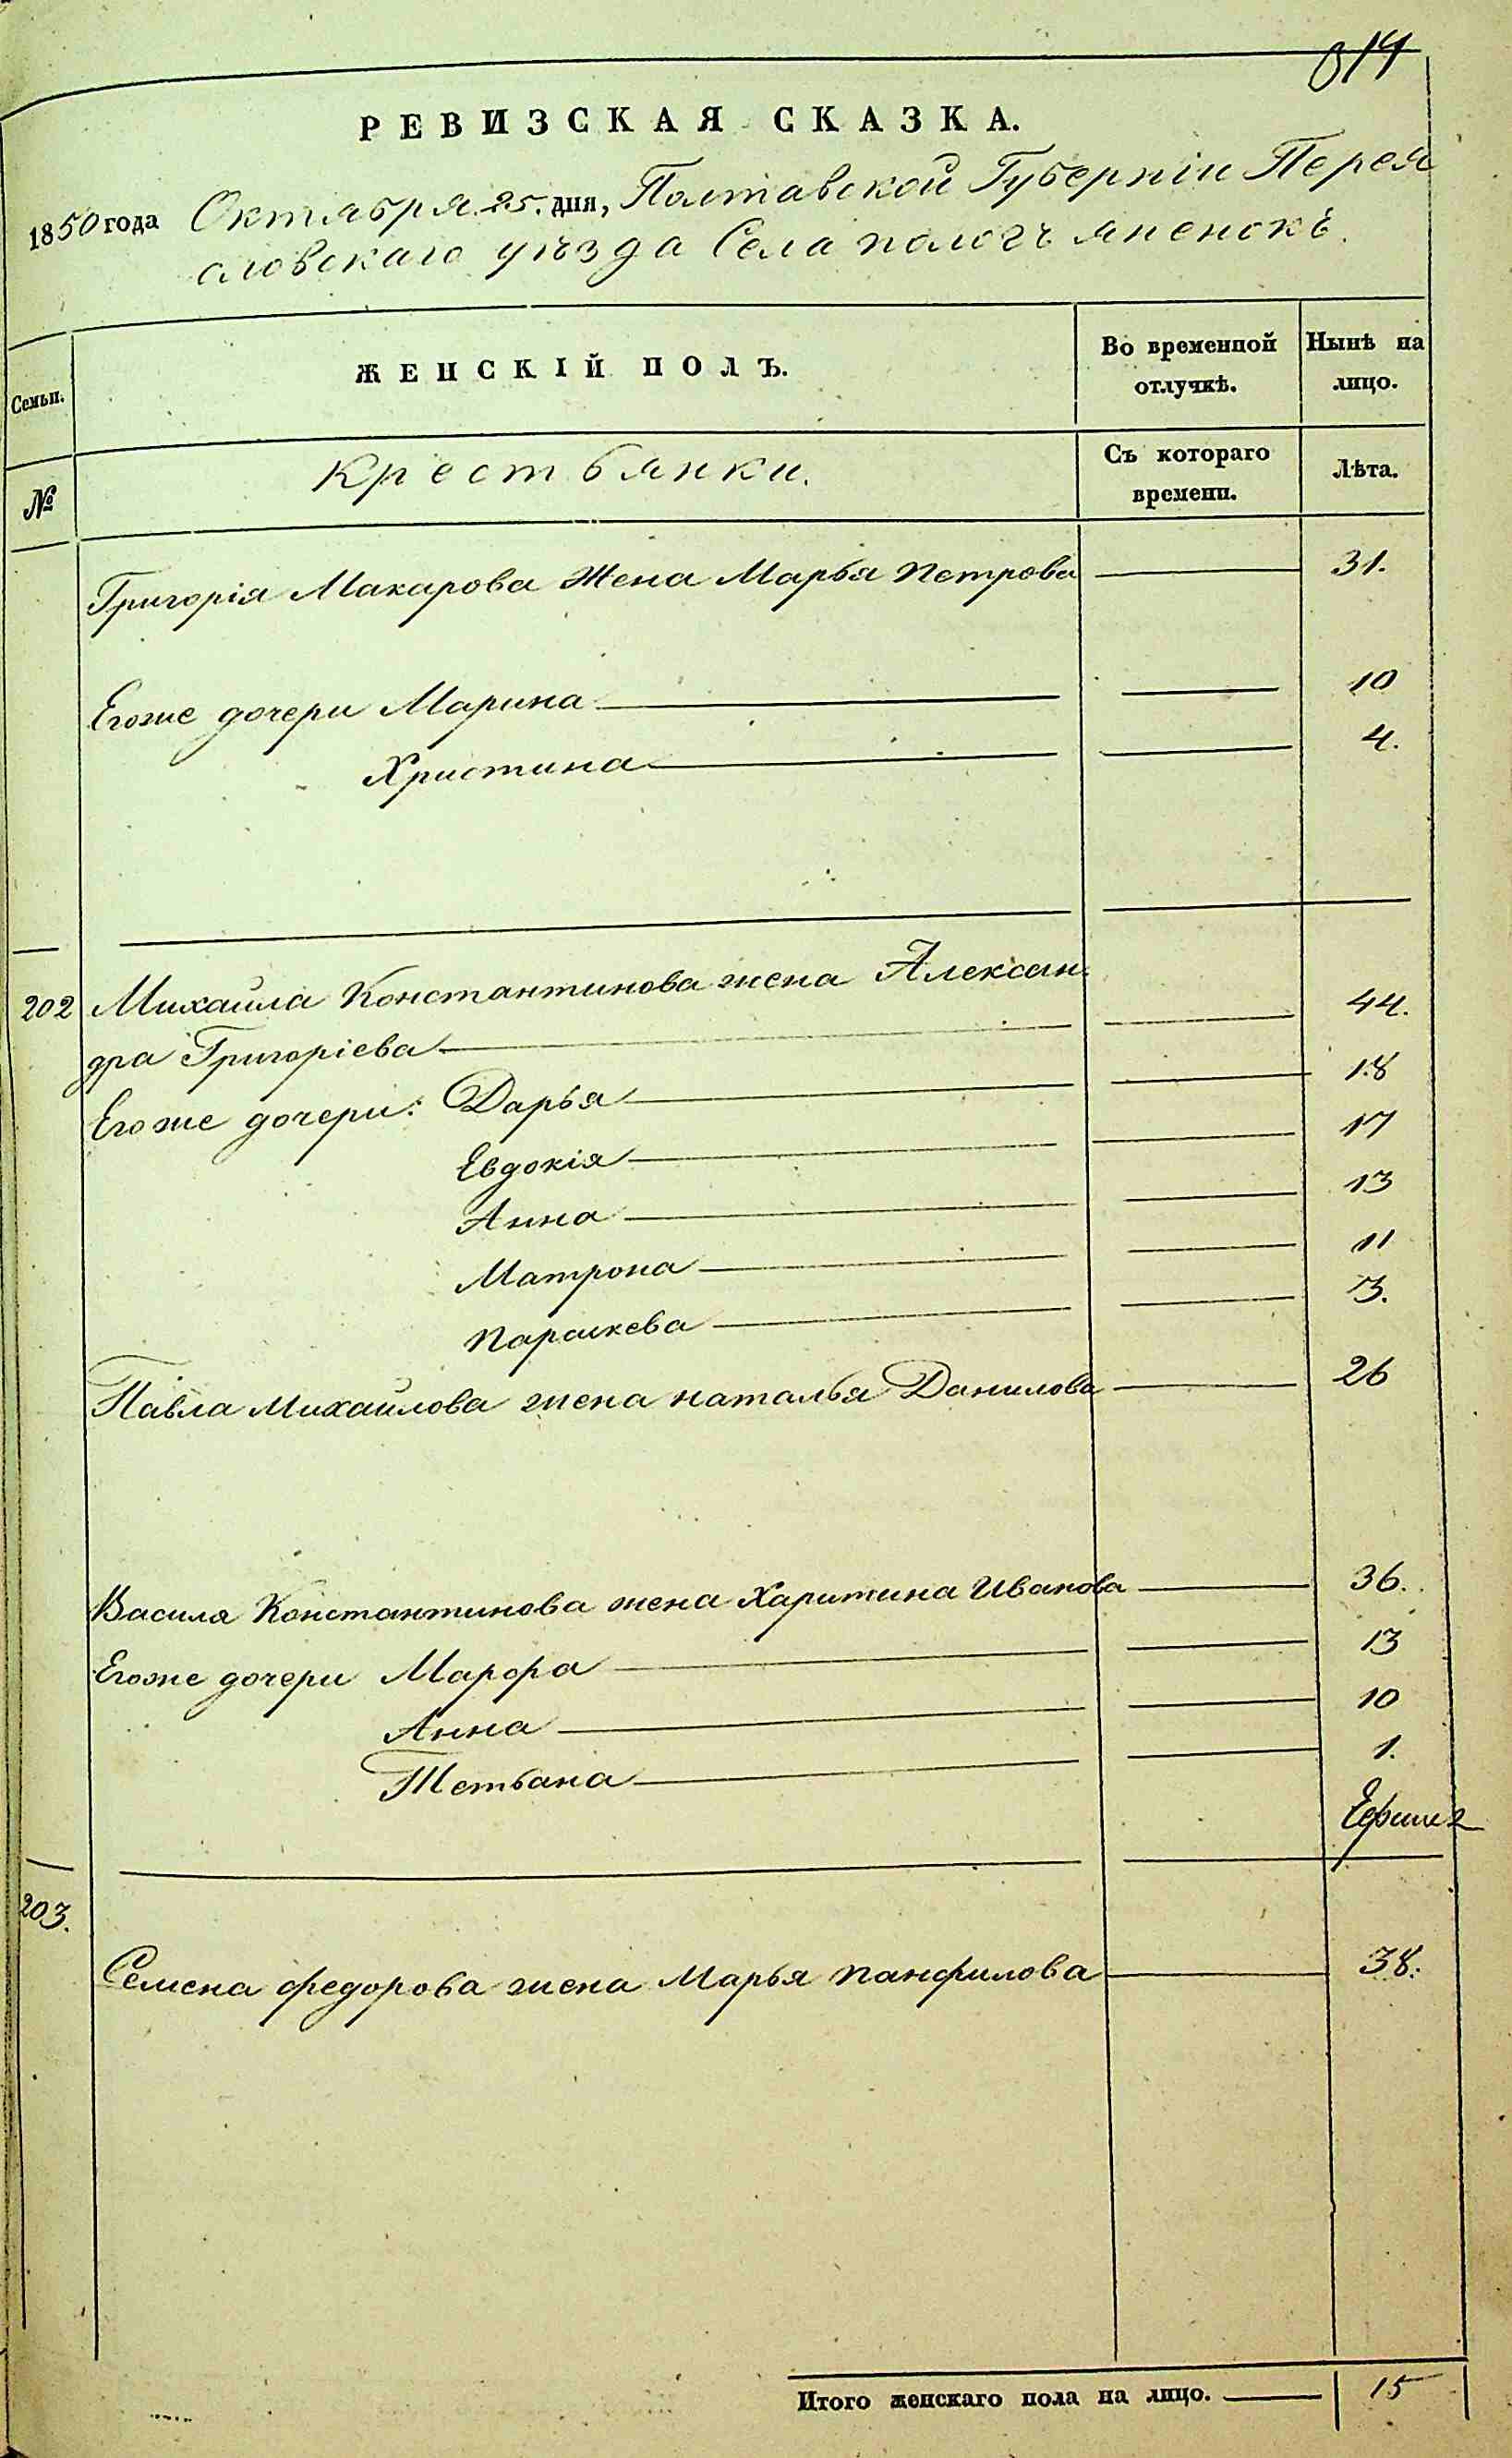 814
РЕВИЗСКАЯ СКАЗКА.
1850 года Октября 25. дня, Полтавской Губерніи Перея
словскаго уѣзда Села пологъ яненокъ.
Семьи.
ЖЕНСКІЙ ПОЛЪ.
Во временной отлучкѣ.
Нынѣ на лицо.
№
Крестьянки.
Съ котораго времени.
Лѣта.
Григорія Макарова Жена Марья Петрова 31.
Егоже дочери Марина 10
Христина 4.
202 Михайла Константинова жена Алексан
дра Григоріева 44.
Егоже дочери: Дарья 18
Евдокія 17
Анна 13
Матрона 11
Параскева 3.
Павла Михайлова жена наталья Данилова 26
Василя Константинова жена Харитина Иванова 36.
Егоже дочери Марфа 13
Анна 10
Тетьана 1.
203.
Семена федорова жена Марья панфилова 38.
Итого женскаго пола на лицо. 15